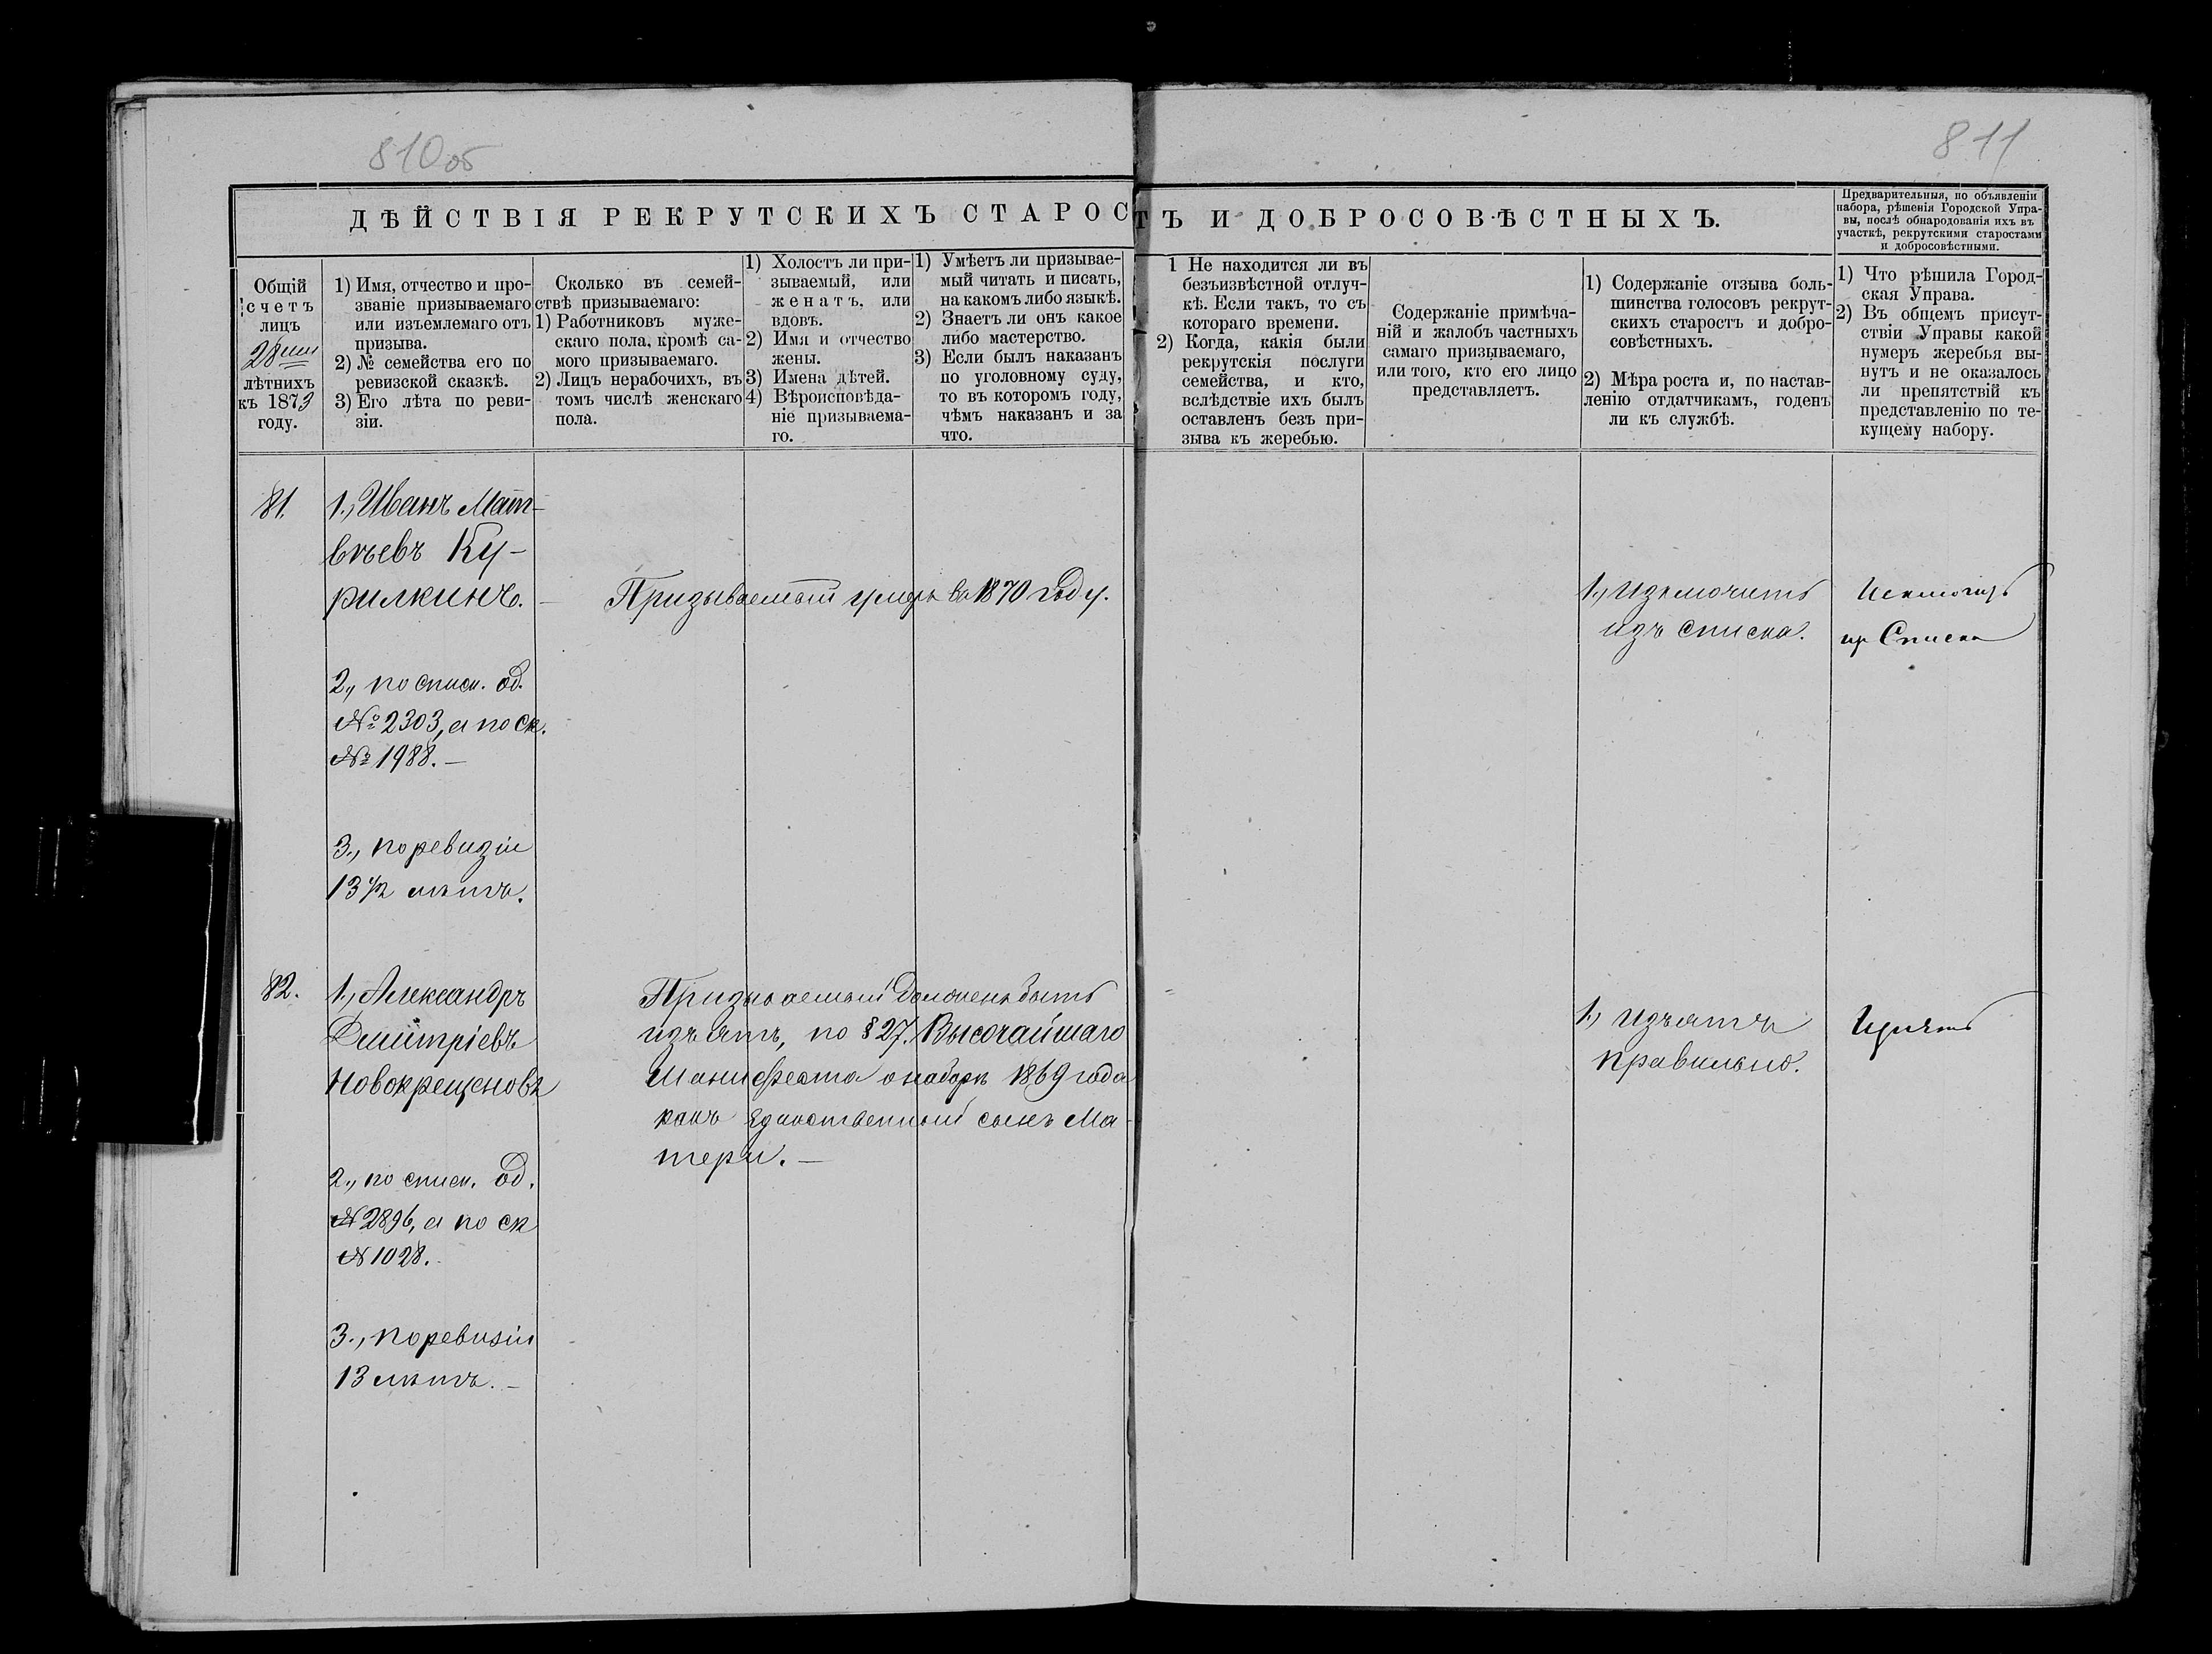 810 об
811
ДѢЙСТВІЯ РЕКРУТСКИХЪ СТАРОСТЪ И ДОБРОСОВѢСТНЫХЪ.
Предварительныя, по объявленіи
набора, рѣшенія Городской Упра-
вы, послѣ обнародованія ихъ въ
участкѣ, рекрутскими старостами
и добросовѣстными.
Общій
счетъ
лицъ
28ми
лѣтнихъ
къ 1873
году.
1) Имя, отчество и про-
званіе призываемаго
или изъемлемаго отъ
призыва.
2) № семейства его по
ревизской сказкѣ.
3) Его лѣта по реви-
зіи.
Сколько въ семей-
ствѣ призываемаго:
1) Работниковъ муже-
скаго пола, кромѣ са-
мого призываемаго.
2) Лицъ нерабочихъ, въ
томъ числѣ женскаго
пола.
1) Холостъ ли при-
зываемый, или
женатъ, или
вдовъ.
2) Имя и отчество
жены.
3) Имена дѣтей.
4) Вѣроисповѣда-
ніе призываема-
го.
1) Умѣетъ ли призывае-
мый читать и писать,
на какомъ либо языкѣ.
2) Знаетъ ли онъ какое
либо мастерство.
3) Если былъ наказанъ
по уголовному суду,
то въ которомъ году,
чѣмъ наказанъ и за
что.
1 Не находится ли въ
безъизвѣстной отлуч-
кѣ. Если такъ, то съ
котораго времени.
2) Когда, какія были
рекрутскія послуги
семейства, и кто,
вслѣдствіе ихъ былъ
оставленъ безъ при-
зыва къ жеребью.
Содержаніе примѣча-
ній и жалобъ частныхъ
самаго призываемаго,
или того, кто его лицо
представляетъ.
1) Содержаніе отзыва боль-
шинства голосовъ рекрут-
скихъ старостъ и добро-
совѣстныхъ.
2) Мѣра роста и, по настав-
ленію отдатчикамъ, годенъ
ли къ службѣ.
1) Что рѣшила Город-
ская Управа.
2) Въ общемъ присут-
ствіи Управы какой
нумеръ жеребья вы-
нутъ и не оказалось
ли препятствій къ
представленію по те-
кущему набору.
81.
1., Иванъ Мат-
вѣевъ Ку-
рилкинъ. –
Призываемый умеръ въ 1870 году.
1., Изключить
изъ списка.
Исключить
изъ Списка
2., по списк. об.
№ 2303, а по ск.
№ 1988. –
3., по ревизіи
13 1/2 лѣтъ.
82.
1., Александръ
Дмитріевъ
Новокрещеновъ
Призываемый долженъ быть
изъятъ, по § 27. Высочайшаго
Манифеста о наборѣ 1869 года
какъ единственный сынъ Ма-
тери. –
1., Изъятъ
правильно.
Изъять
2., по списк. об.
№ 2896, а по ск
№ 1028.
3., по ревизіи
13 лѣтъ. –